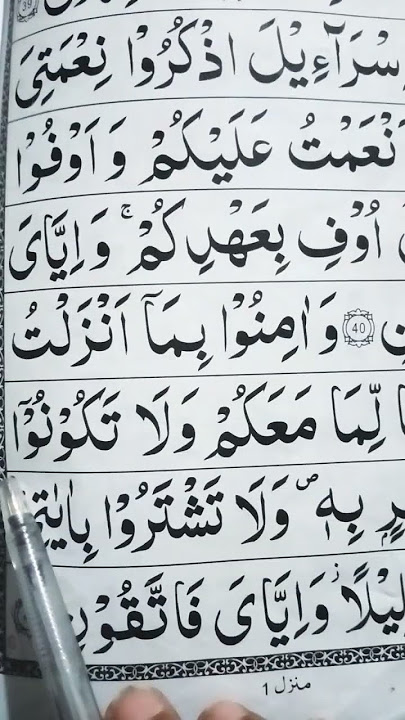 39
اِسْرَآءِیْلَ اذْكُرُوْا نِعْمَتِیَ
اَنْعَمْتُ عَلَیْكُمْ وَ اَوْفُوْا
اُوْفِ بِعَهْدِكُمْ ۚ وَ اِیَّایَ
40 وَ اٰمِنُوْا بِمَاۤ اَنْزَلْتُ
لِّمَا مَعَكُمْ وَ لَا تَكُوْنُوْۤا
بِهٖ ۪ وَ لَا تَشْتَرُوْا بِاٰیٰتِیْ
قَلِیْلًا ؗ وَّ اِیَّایَ فَاتَّقُوْنِ
منزل 1